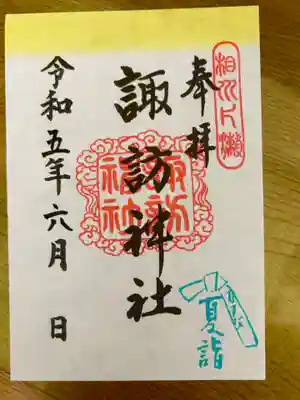 相州片瀬
奉拝
諏訪神社
諏訪
神社
夏詣
令和五年六月 日